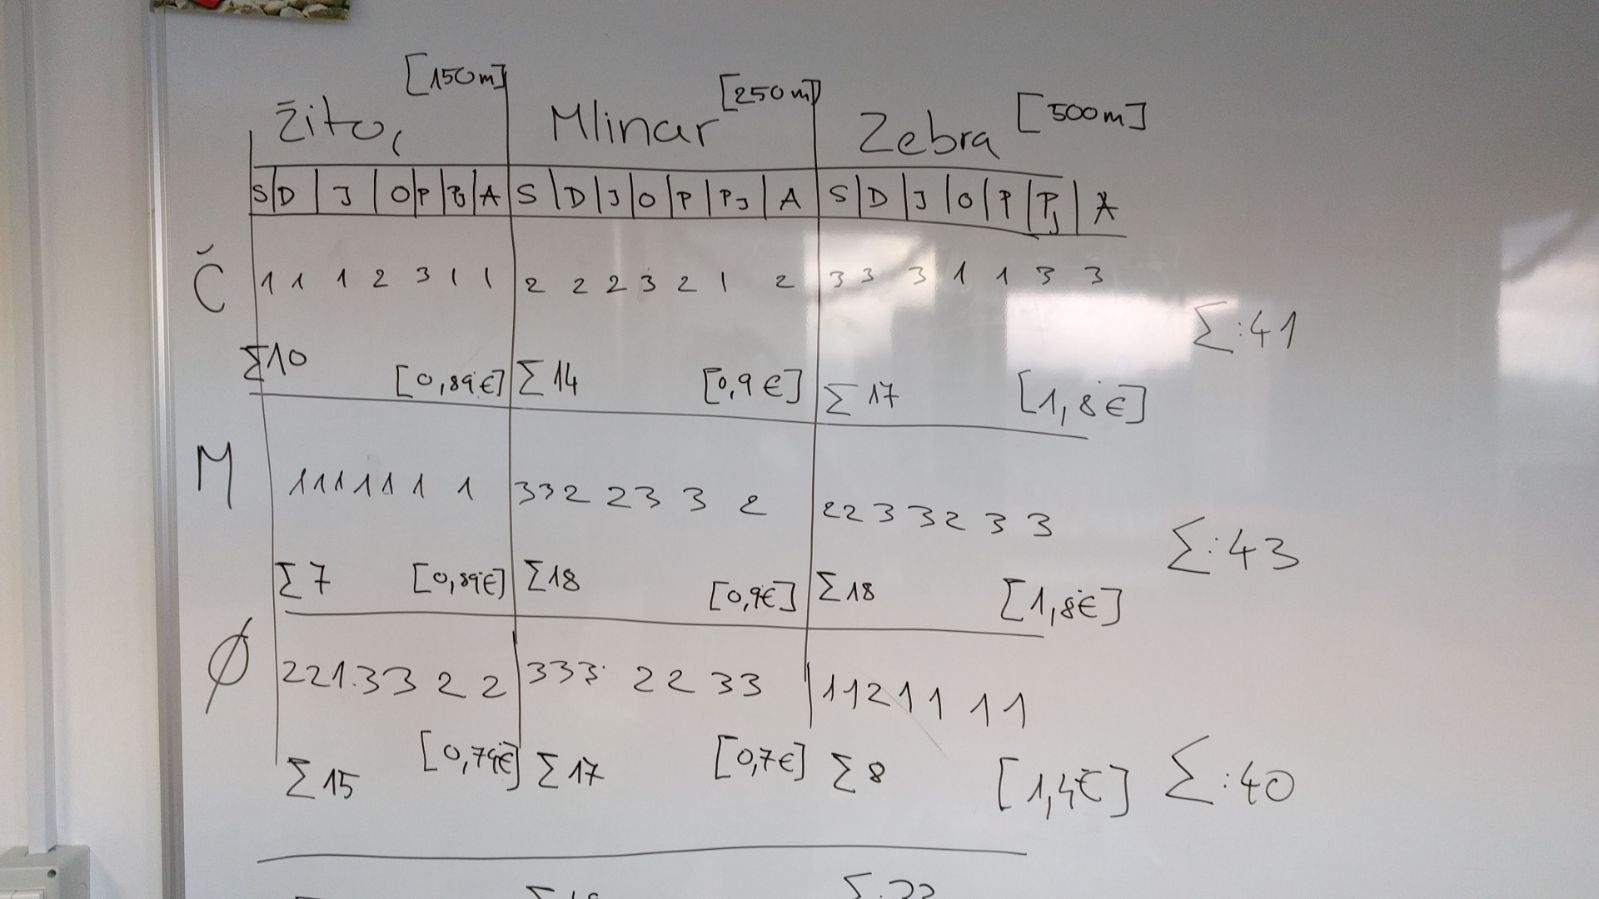 Žito, [150m] Mlinar [250m] Zebra [500m]
S D J O P Pj A S D J O P PJ A S D J O P Pj A
Č 1 1 1 2 3 1 1 2 2 2 3 2 1 2 3 3 3 1 1 3 3
Σ:41
Σ10 [0,89€] Σ14 [0,9€] Σ17 [1,8€]
M 1 1 1 1 1 1 1 3 3 2 2 3 3 2 2 2 3 3 2 3 3
Σ:43
Σ7 [0,89€] Σ18 [0,9€] Σ18 [1,8€]
Ø 2 2 1 3 3 2 2 3 3 3 2 2 3 3 1 1 2 1 1 1 1
Σ15 [0,79€] Σ17 [0,7€] Σ8 [1,4€] Σ:40